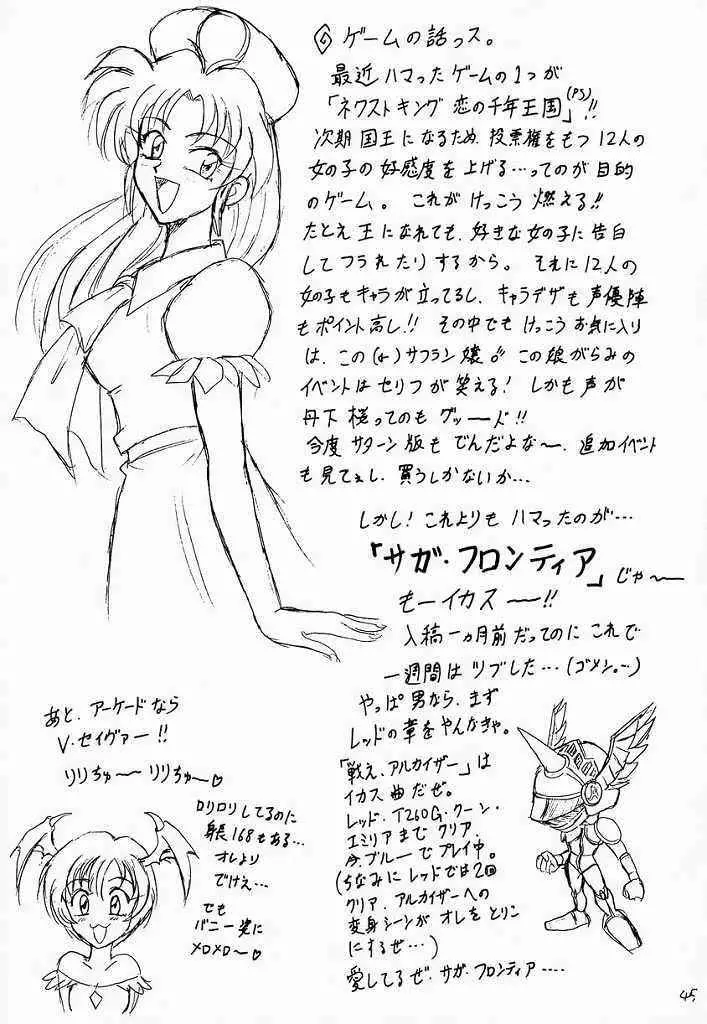 ◎ゲームの話っス。
最近ハマったゲームの1つが
「ネクストキング 恋の千年王国」(PS)!!
次期国王になるため、投票権をもつ12人の
女の子の好感度を上げる…ってのが目的
のゲーム。 これがけっこう燃える!!
たとえ王になれても、好きな女の子に告白
してフラれたりするから。 それに12人の
女の子もキャラが立ってるし、キャラデザも声優陣
もポイント高し!! その中でもけっこうお気に入り
は、この(←)サフラン嬢。 この娘がらみの
イベントはセリフが笑える! しかも声が
丹下桜ってのもグッード!!
今度サターン版もでんだよな〜、追加イベント
も見てぇし、買うしかないか…
しかし! これよりもハマったのが…
「サガ・フロンティア」じゃ〜
もーイカス〜!!
入稿一ヵ月前だってのにこれで
一週間はツブした…(ゴメン。…)
やっぱ男なら、まず
レッドの章をやんなきゃ。
「戦え、アルカイザー」は
イカス曲だぜ。
レッド、T260G、クーン、
エミリアまでクリア、
今、ブルーでプレイ中。
(ちなみにレッドでは2回
クリア、アルカイザーへの
変身シーンがオレをとりこ
にするぜ…)
愛してるぜ、サガ・フロンティア…
あと、アーケードなら
V.セイヴァー!!
リリちゅ〜 リリちゅ〜♡
ロリロリしてるのに
身長168もある…
オレより
でけえ…
でも
バニー姿に
メロメロ〜♡
45.